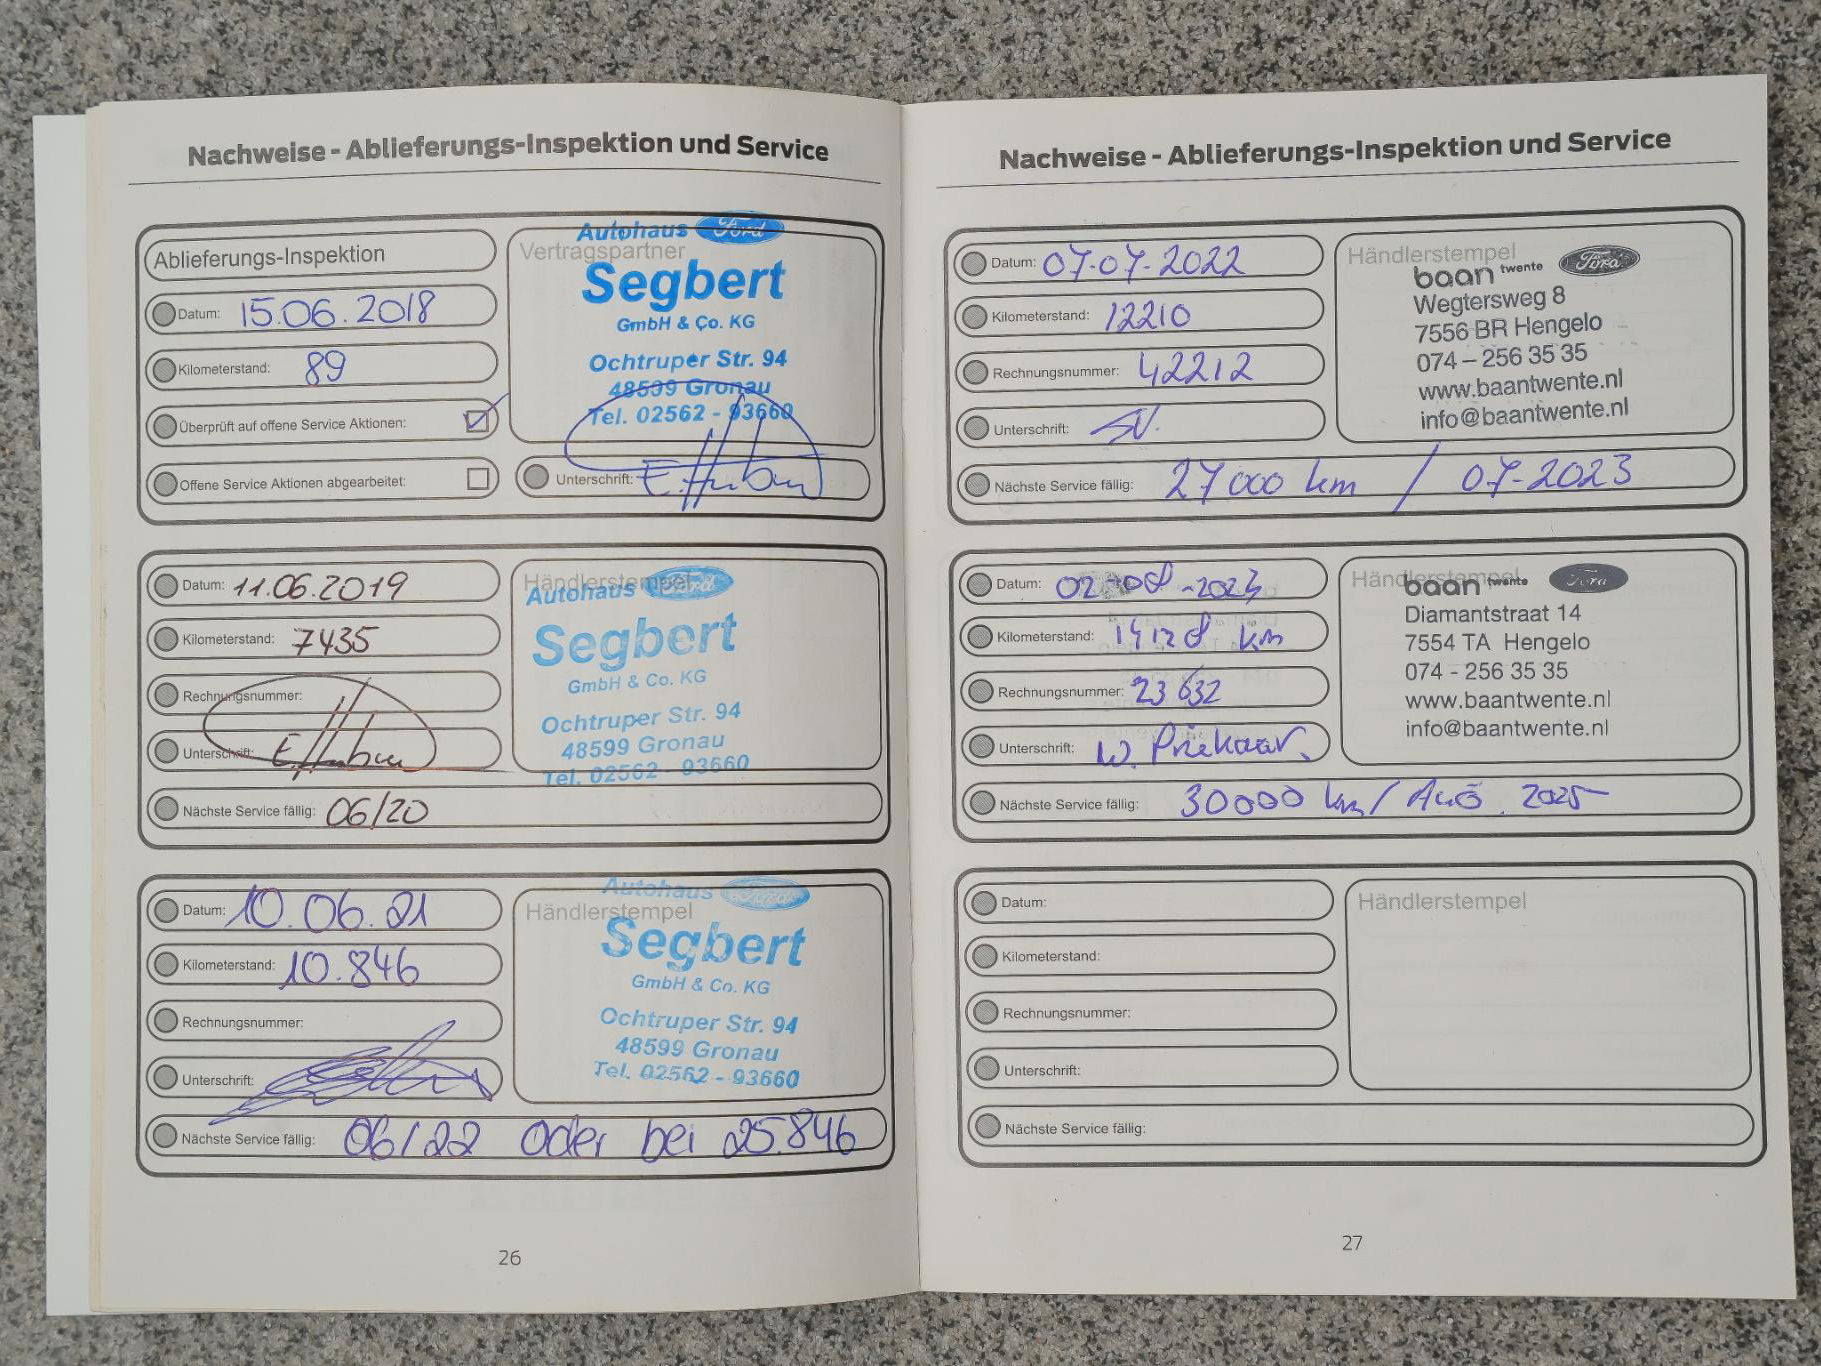 Nachweise - Ablieferungs-Inspektion und Service
Ablieferungs-Inspektion
Datum: 15.06.2018
Kilometerstand: 89
Überprüft auf offene Service Aktionen:
Offene Service Aktionen abgearbeitet:
Vertragspartner
Autohaus Ford
Segbert
GmbH & Co. KG
Ochtruper Str. 94
48599 Gronau
Tel. 02562 - 93660
Unterschrift:
Datum: 11.06.2019
Kilometerstand: 7435
Rechnungsnummer:
Unterschrift:
Nächste Service fällig: 06/20
Händlerstempel
Autohaus Ford
Segbert
GmbH & Co. KG
Ochtruper Str. 94
48599 Gronau
Tel. 02562 - 93660
Datum: 10.06.21
Kilometerstand: 10.846
Rechnungsnummer:
Unterschrift:
Nächste Service fällig: 06/22 oder bei 25.846
Händlerstempel
Autohaus Ford
Segbert
GmbH & Co. KG
Ochtruper Str. 94
48599 Gronau
Tel. 02562 - 93660
26
Nachweise - Ablieferungs-Inspektion und Service
Datum: 07-07-2022
Kilometerstand: 12210
Rechnungsnummer: 42212
Unterschrift:
Nächste Service fällig: 27000 km / 07-2023
Händlerstempel
baan twente Ford
Wegtersweg 8
7556 BR Hengelo
074 - 256 35 35
www.baantwente.nl
info@baantwente.nl
Datum: 02-08-2023
Kilometerstand: 14128 km
Rechnungsnummer: 23632
Unterschrift: W.
Nächste Service fällig: 30000 km / Aug. 2025
Händlerstempel
baan twente Ford
Diamantstraat 14
7554 TA Hengelo
074 - 256 35 35
www.baantwente.nl
info@baantwente.nl
Datum:
Kilometerstand:
Rechnungsnummer:
Unterschrift:
Nächste Service fällig:
Händlerstempel
27